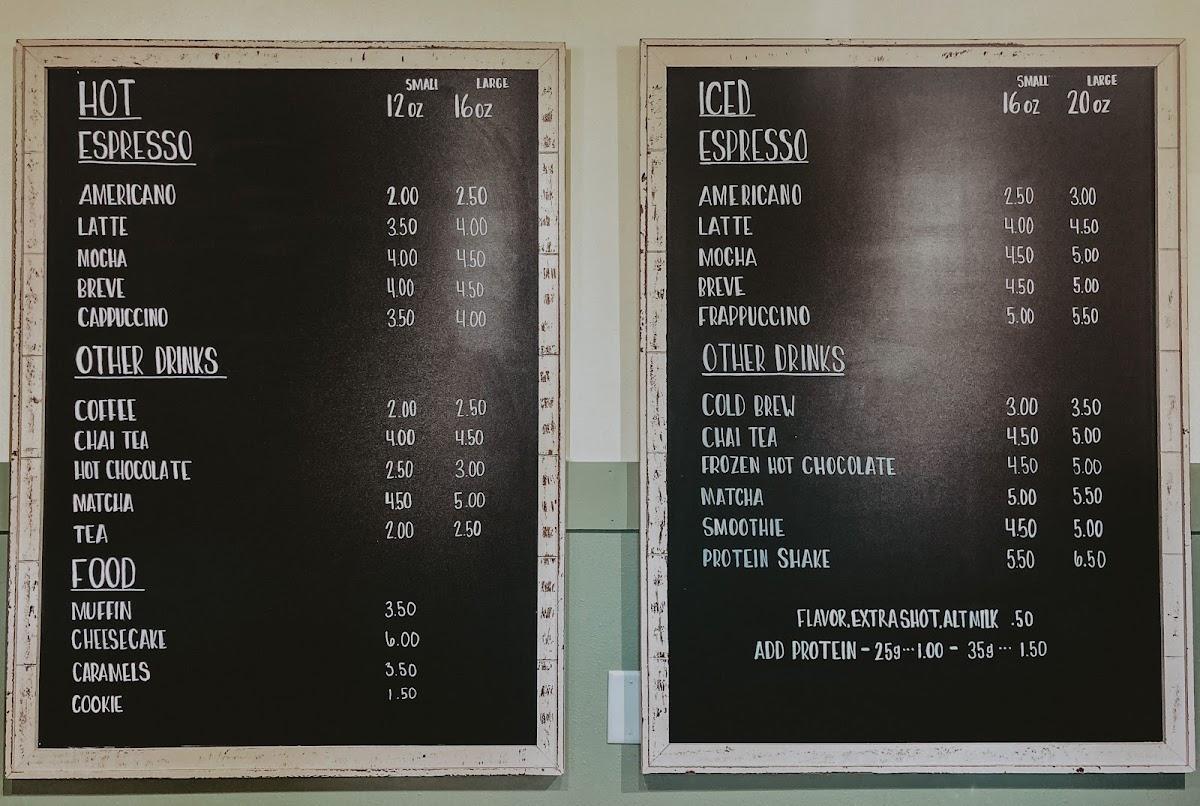 HOT SMALL LARGE
12 oz 16 oz
ESPRESSO
AMERICANO 2.00 2.50
LATTE 3.50 4.00
MOCHA 4.00 4.50
BREVE 4.00 4.50
CAPPUCCINO 3.50 4.00
OTHER DRINKS
COFFEE 2.00 2.50
CHAI TEA 4.00 4.50
HOT CHOCOLATE 2.50 3.00
MATCHA 4.50 5.00
TEA 2.00 2.50
FOOD
MUFFIN 3.50
CHEESECAKE 6.00
CARAMELS 3.50
COOKIE 1.50
ICED SMALL LARGE
16 oz 20 oz
ESPRESSO
AMERICANO 2.50 3.00
LATTE 4.00 4.50
MOCHA 4.50 5.00
BREVE 4.50 5.00
FRAPPUCCINO 5.00 5.50
OTHER DRINKS
COLD BREW 3.00 3.50
CHAI TEA 4.50 5.00
FROZEN HOT CHOCOLATE 4.50 5.00
MATCHA 5.00 5.50
SMOOTHIE 4.50 5.00
PROTEIN SHAKE 5.50 6.50
FLAVOR, EXTRA SHOT, ALT MILK .50
ADD PROTEIN - 25g ... 1.00 - 35g ... 1.50